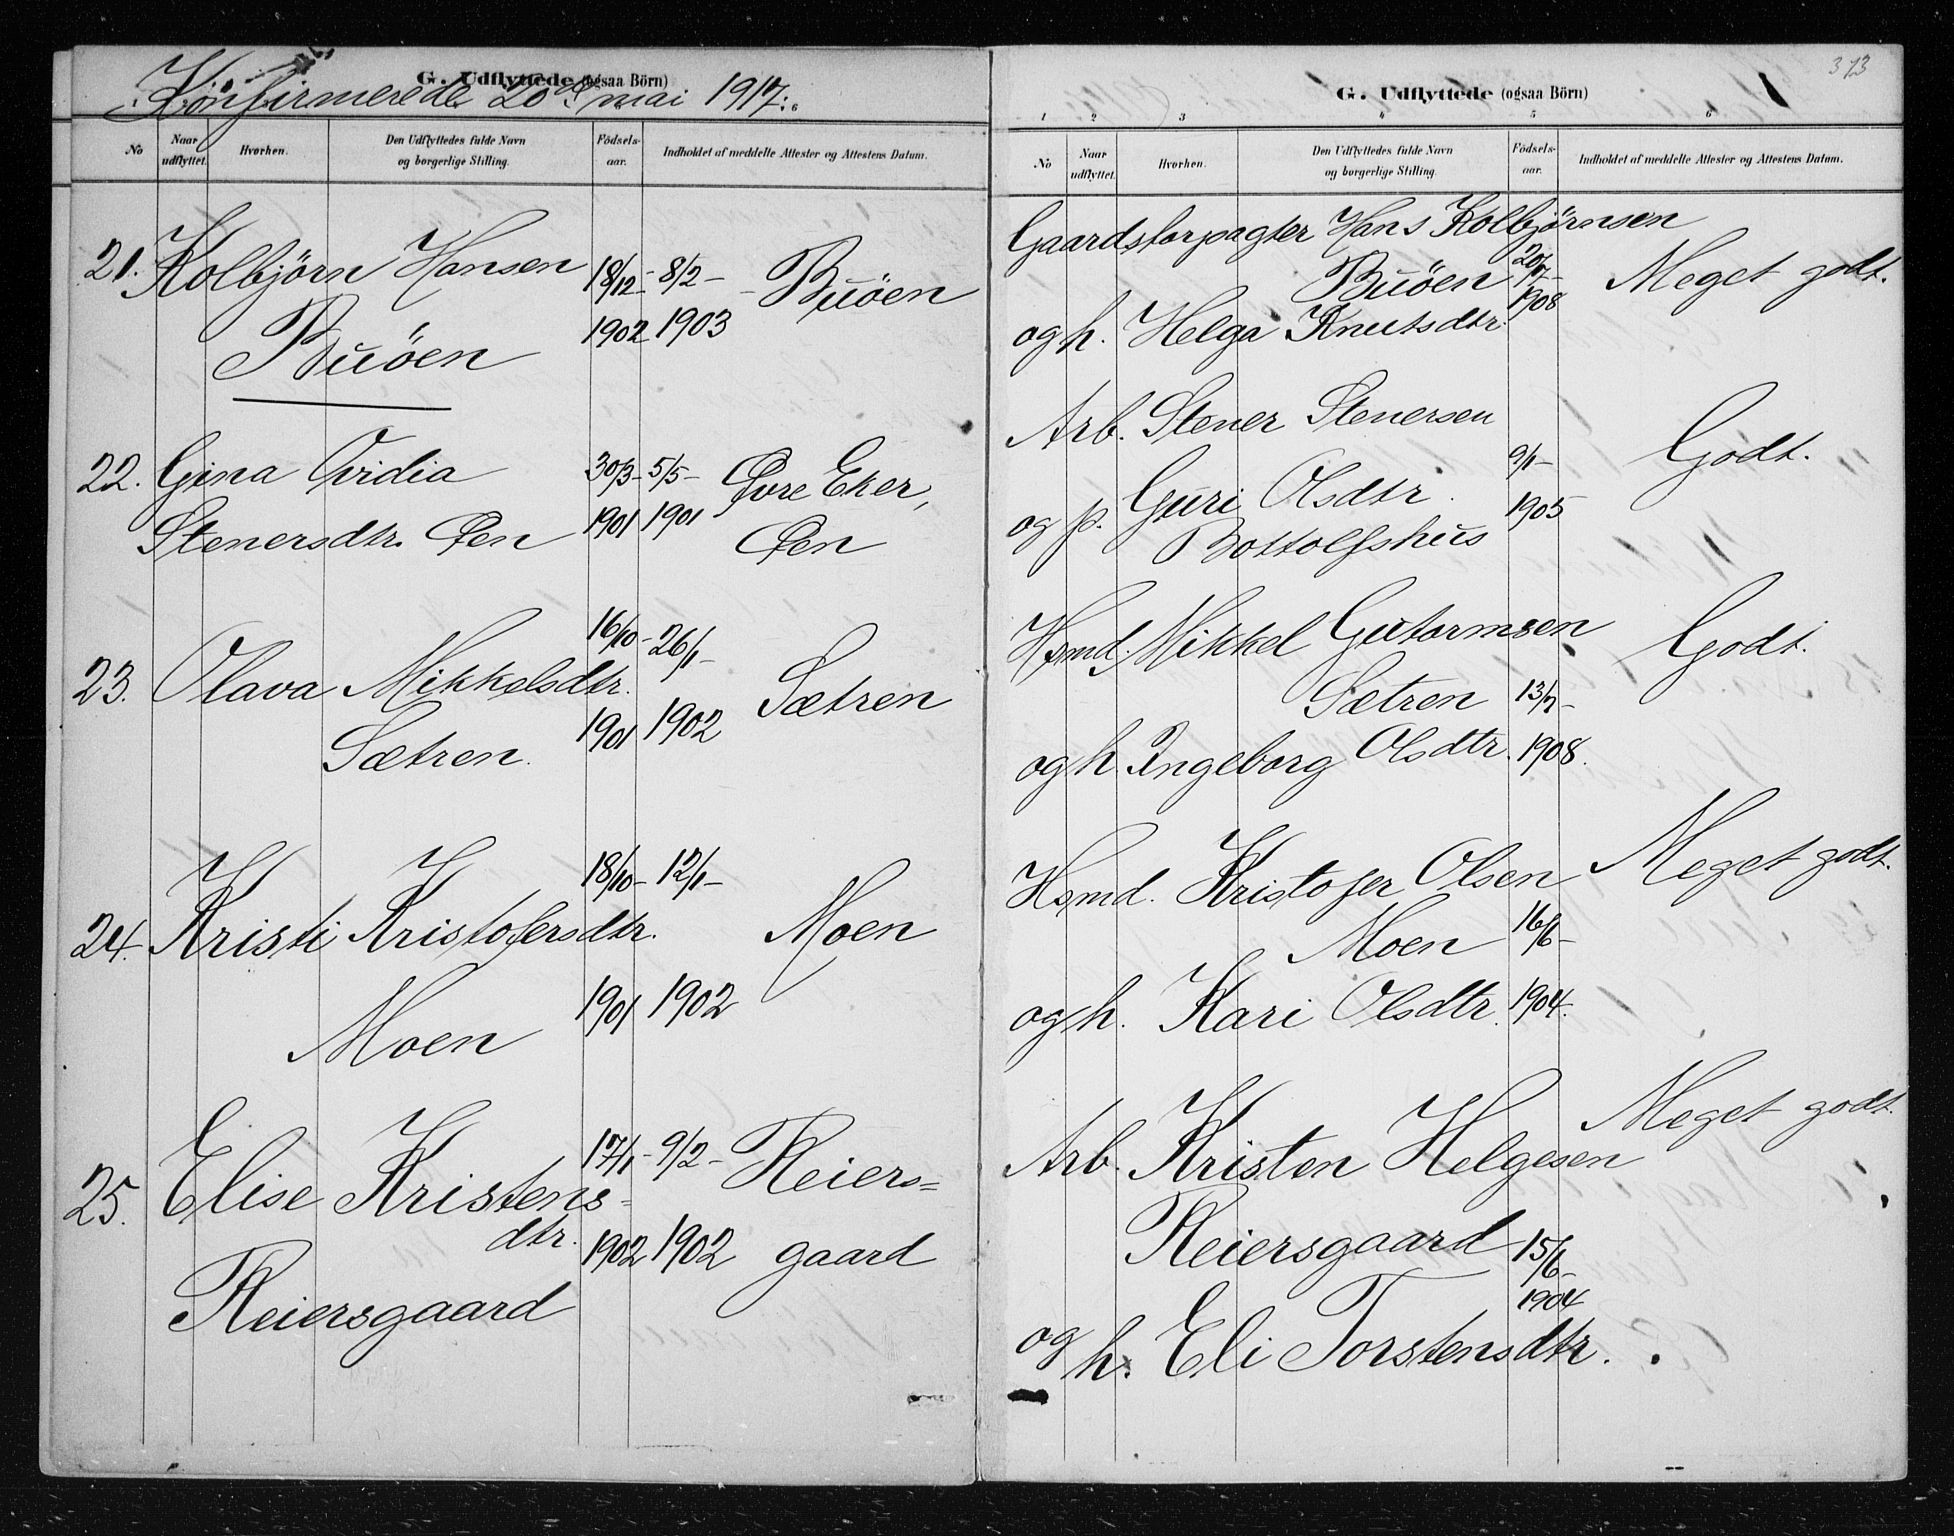 G. Udflyttede (ogsaa Börn)
Konfirmerede 20de mai 1917:
No
Naar udflyttet.
Hvorhen.
Den Udflyttedes fulde Navn og borgerlige Stilling.
Fødsels-aar.
Indholdet af meddelte Attester og Attestens Datum.
21. Kolbjörn Hansen 18/12- 8/2- Buöen
Buöen 1902 1903
22. Gina Ovidia 30/3- 5/5- Øvre Eker,
Stenersdtr. Øen 1901 1901 Øen
23. Olava Mikkelsdtr. 16/10- 26/1- Sætren
Sætren. 1901 1902
24. Kristi Kristofersdtr. 18/10- 12/1- Moen
Moen 1901 1902
25. Elise Kristens- 17/1- 9/2- Reiers=
dtr. 1902 1902 gaard
Reiersgaard
373
G. Udflyttede (ogsaa Börn)
1 2 3 4 5 6
No
Naar udflyttet.
Hvorhen.
Den Udflyttedes fulde Navn og borgerlige Stilling.
Fødsels-aar.
Indholdet af meddelte Attester og Attestens Datum.
Gaardsforpagter Hans Kolbjörnsen
Buöen 20/7- Meget godt.
og h. Helga Knutsdtr. 1908
Arb. Stener Stenersen
Godt.
og p. Guri Olsdtr. 9/1-
Bottolfshus 1905
Hsmd. Mikkel Gutormsen Godt.
Sætren 13/7-
og h. Ingeborg Olsdtr. 1908.
Hsmd. Kristofer Olsen Meget godt.
Moen 16/6-
og h. Kari Olsdtr. 1904.
Arb. Kristen Helgesen Meget godt.
Reiersgaard 15/6-
1904
og h. Eli Torstensdtr.